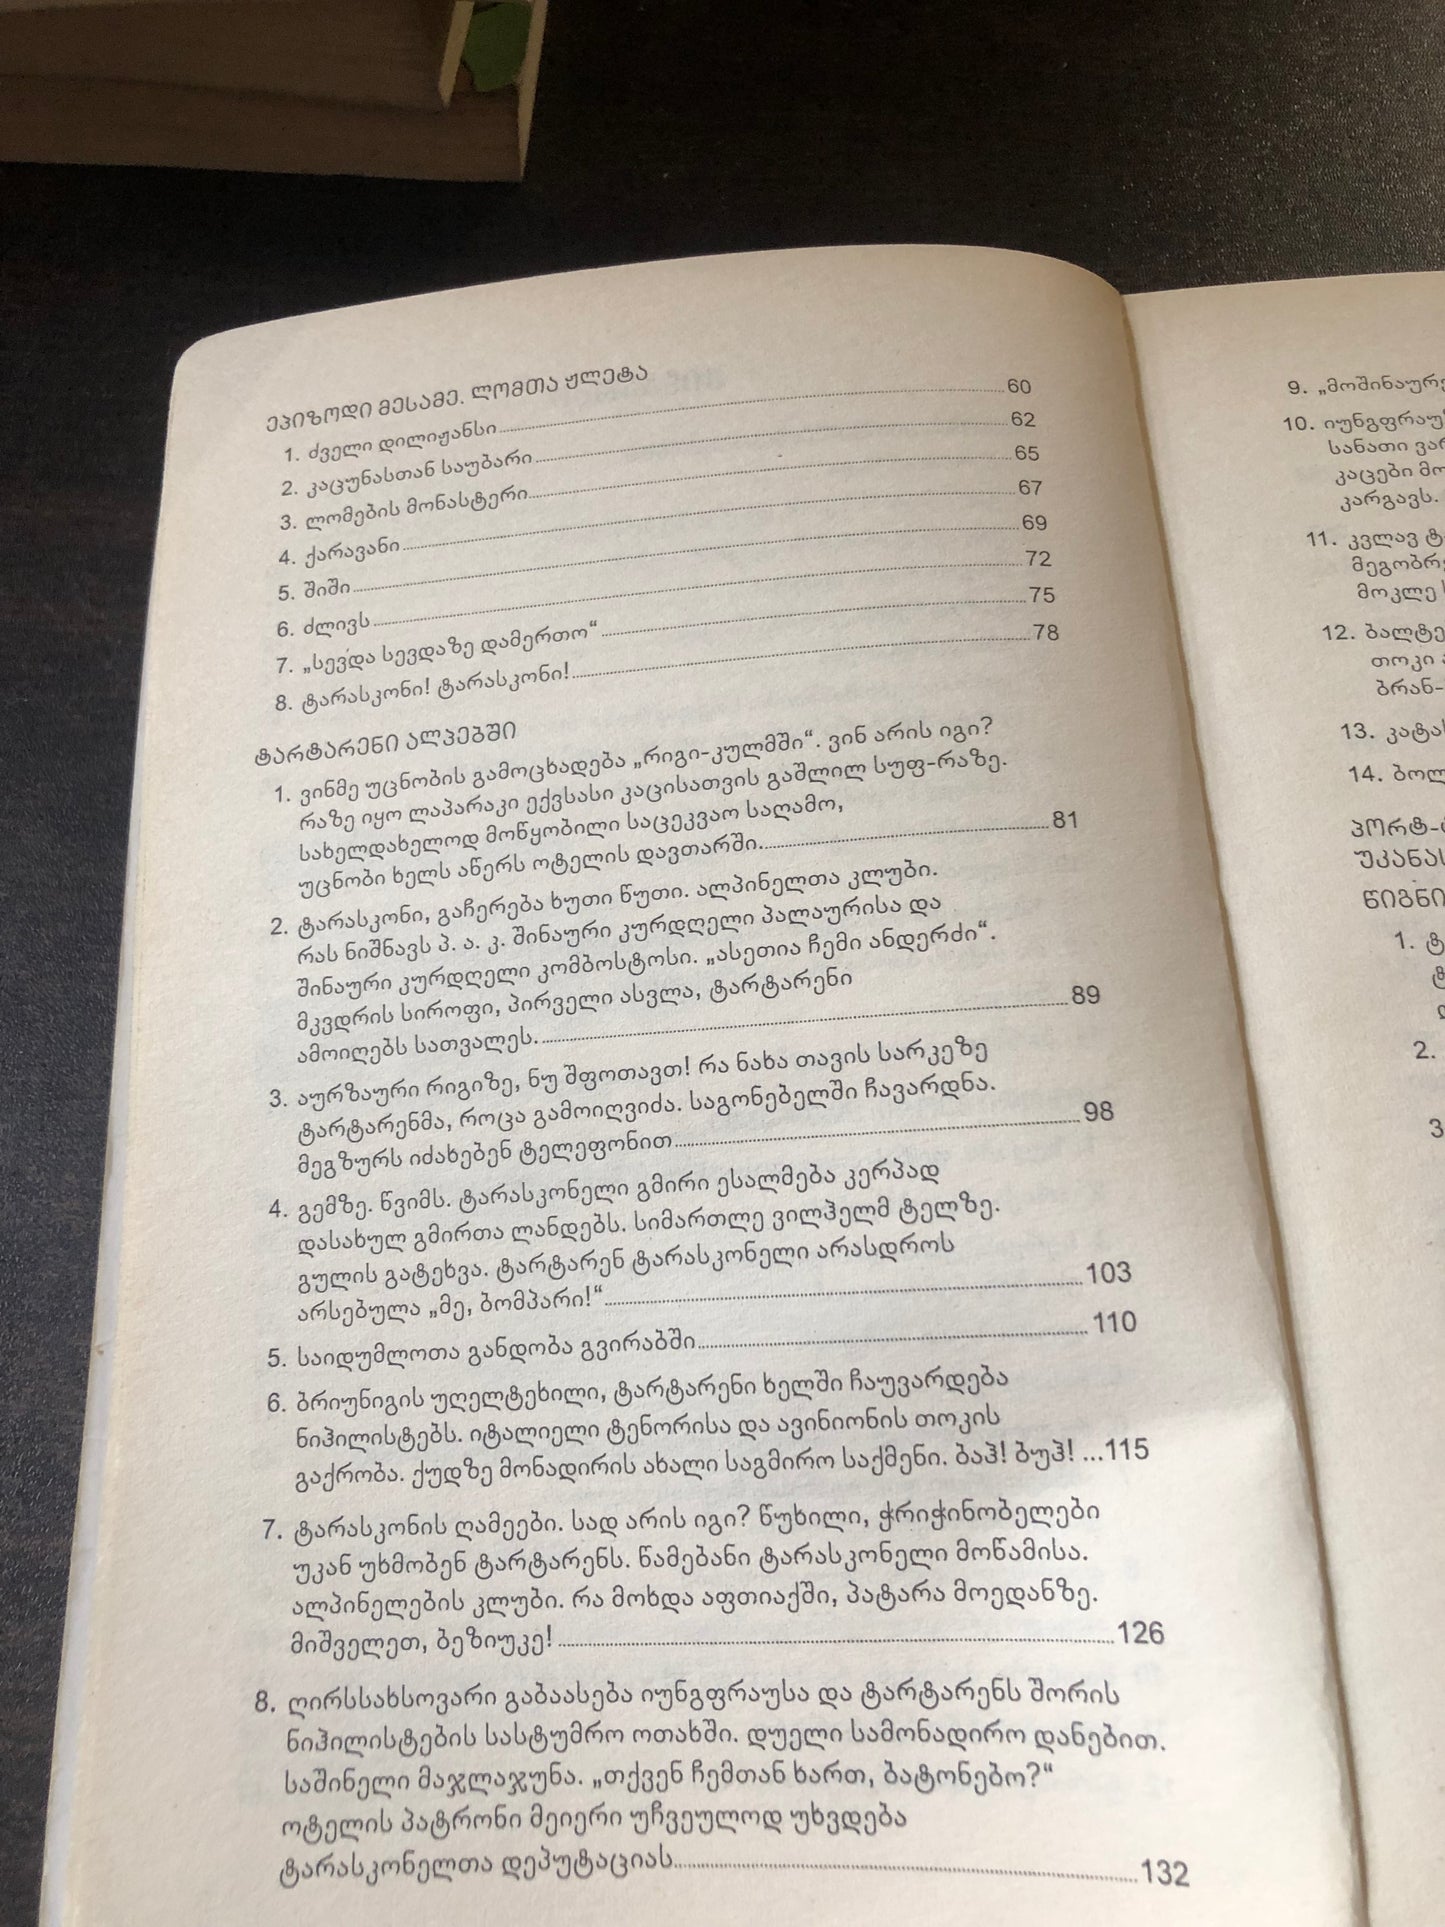 ეპიზოდი მესამე. ლომთა ჟლეტა
1. ძველი დილიჟანსი 60
2. კაცუნასთან საუბარი 62
3. ლომების მონასტერი 65
4. ქარავანი 67
5. შიში 69
6. ძლივს 72
7. „სევდა სევდაზე დამერთო“ 75
8. ტარასკონი! ტარასკონი! 78
ტარტარენი ალპებში
1. ვინმე უცნობის გამოცხადება „რიგი-კულმში“. ვინ არის იგი?
რაზე იყო ლაპარაკი ექვსასი კაცისათვის გაშლილ სუფ-რაზე.
სახელდახელოდ მოწყობილი საცეკვაო საღამო,
უცნობი ხელს აწერს ოტელის დავთარში. 81
2. ტარასკონი, გაჩერება ხუთი წუთი. ალპინელთა კლუბი.
რას ნიშნავს პ. ა. კ. შინაური კურდღელი პალაურისა და
შინაური კურდღელი კომბოსტოსი. „ასეთია ჩემი ანდერძი“.
მკვდრის სიროფი, პირველი ასვლა, ტარტარენი
ამოიღებს სათვალეს. 89
3. აურზაური რიგიზე, ნუ შფოთავთ! რა ნახა თავის სარკეზე
ტარტარენმა, როცა გამოიღვიძა. საგონებელში ჩავარდნა.
მეგზურს იძახებენ ტელეფონით 98
4. გემზე. წვიმს. ტარასკონელი გმირი ესალმება კერპად
დასახულ გმირთა ლანდებს. სიმართლე ვილჰელმ ტელზე.
გულის გატეხვა. ტარტარენ ტარასკონელი არასდროს
არსებულა „მე, ბომპარი!“ 103
5. საიდუმლოთა განდობა გვირაბში 110
6. ბრიუნიგის უღელტეხილი, ტარტარენი ხელში ჩაუვარდება
ნიჰილისტებს. იტალიელი ტენორისა და ავინიონის თოკის
გაქრობა. ქუდზე მონადირის ახალი საგმირო საქმენი. ბაჰ! ბუჰ! ...115
7. ტარასკონის ღამეები. სად არის იგი? წუხილი, ჭრიჭინობელები
უკან უხმობენ ტარტარენს. წამებანი ტარასკონელი მოწამისა.
ალპინელების კლუბი. რა მოხდა აფთიაქში, პატარა მოედანზე.
მიშველეთ, ბეზიუკე! 126
8. ღირსსახსოვარი გაბაასება იუნგფრაუსა და ტარტარენს შორის
ნიჰილისტების სასტუმრო ოთახში. დუელი სამონადირო დანებით.
საშინელი მაჯლაჯუნა. „თქვენ ჩემთან ხართ, ბატონებო?“
ოტელის პატრონი მეიერი უჩვეულოდ უხვდება
ტარასკონელთა დეპუტაციას 132
9.
10.
სანათი
კაცები
კარგავს.
11. კვლავ
მოკლე
12.
თოკი
ბრან-
13.
14.
1.
2.
3